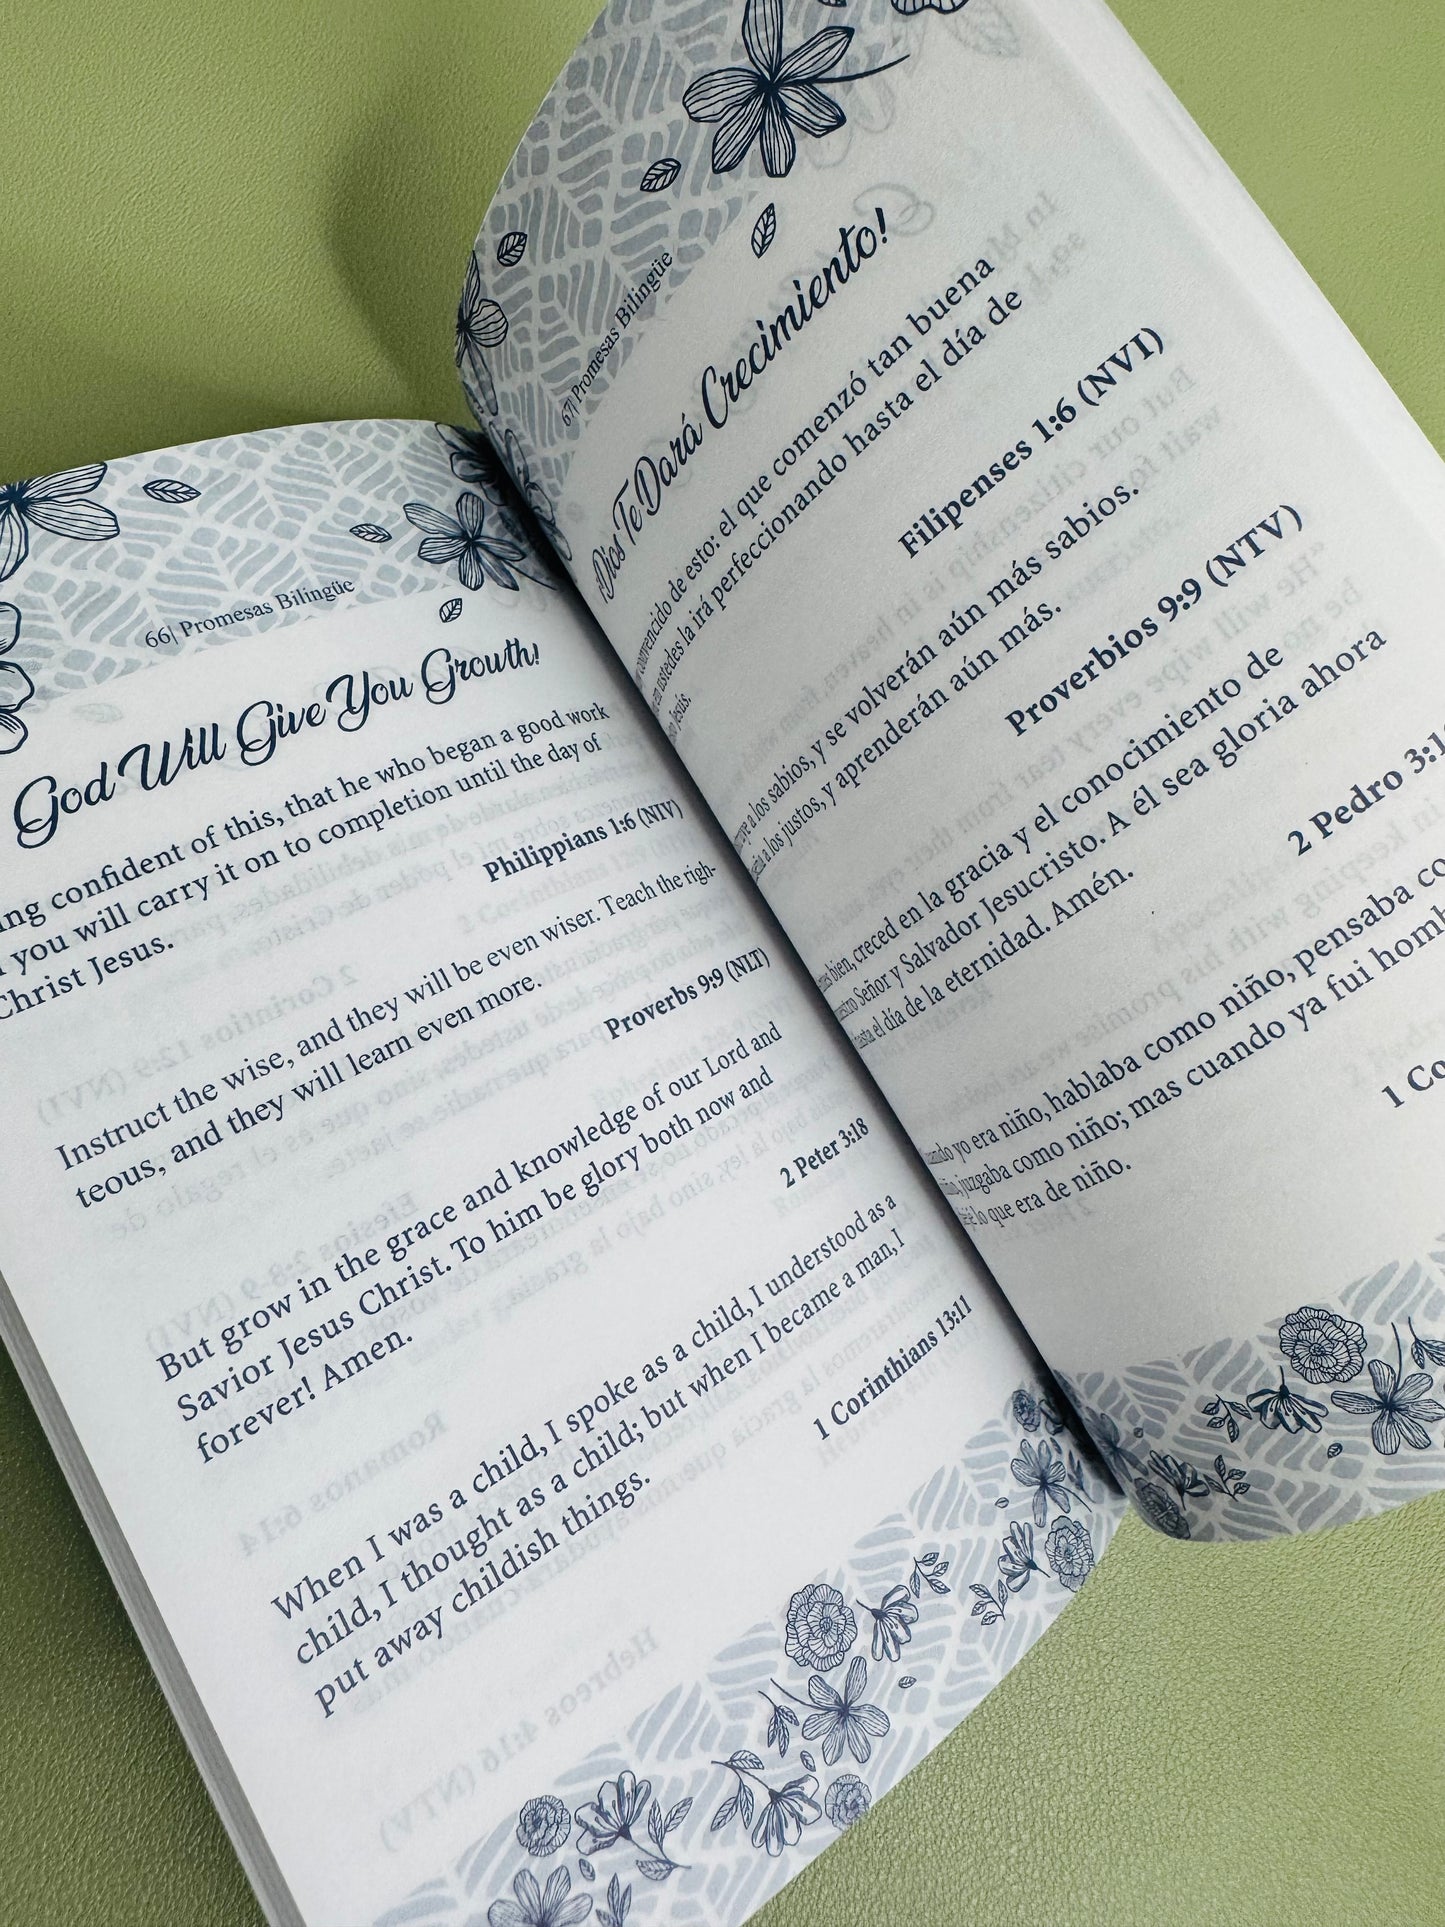 66| Promesas Bilingüe
God Will Give You Growth!
confident of this, that he who began a good work
you will carry it on to completion until the day of
Christ Jesus.
Philippians 1:6 (NIV)
Instruct the wise, and they will be even wiser. Teach the righ-
teous, and they will learn even more.
Proverbs 9:9 (NLT)
But grow in the grace and knowledge of our Lord and
Savior Jesus Christ. To him be glory both now and
forever! Amen.
2 Peter 3:18
When I was a child, I spoke as a child, I understood as a
child, I thought as a child; but when I became a man, I
put away childish things.
1 Corinthians 13:11
67| Promesas Bilingüe
¡Dios Te Dará Crecimiento!
convencido de esto: el que comenzó tan buena
en ustedes la irá perfeccionando hasta el día de
Jesús.
Filipenses 1:6 (NVI)
a los sabios, y se volverán aún más sabios.
a los justos, y aprenderán aún más.
Proverbios 9:9 (NTV)
bien, creced en la gracia y el conocimiento de
Señor y Salvador Jesucristo. A él sea gloria ahora
hasta el día de la eternidad. Amén.
2 Pedro
yo era niño, hablaba como niño, pensaba
juzgaba como niño; mas cuando ya fui
lo que era de niño.
1